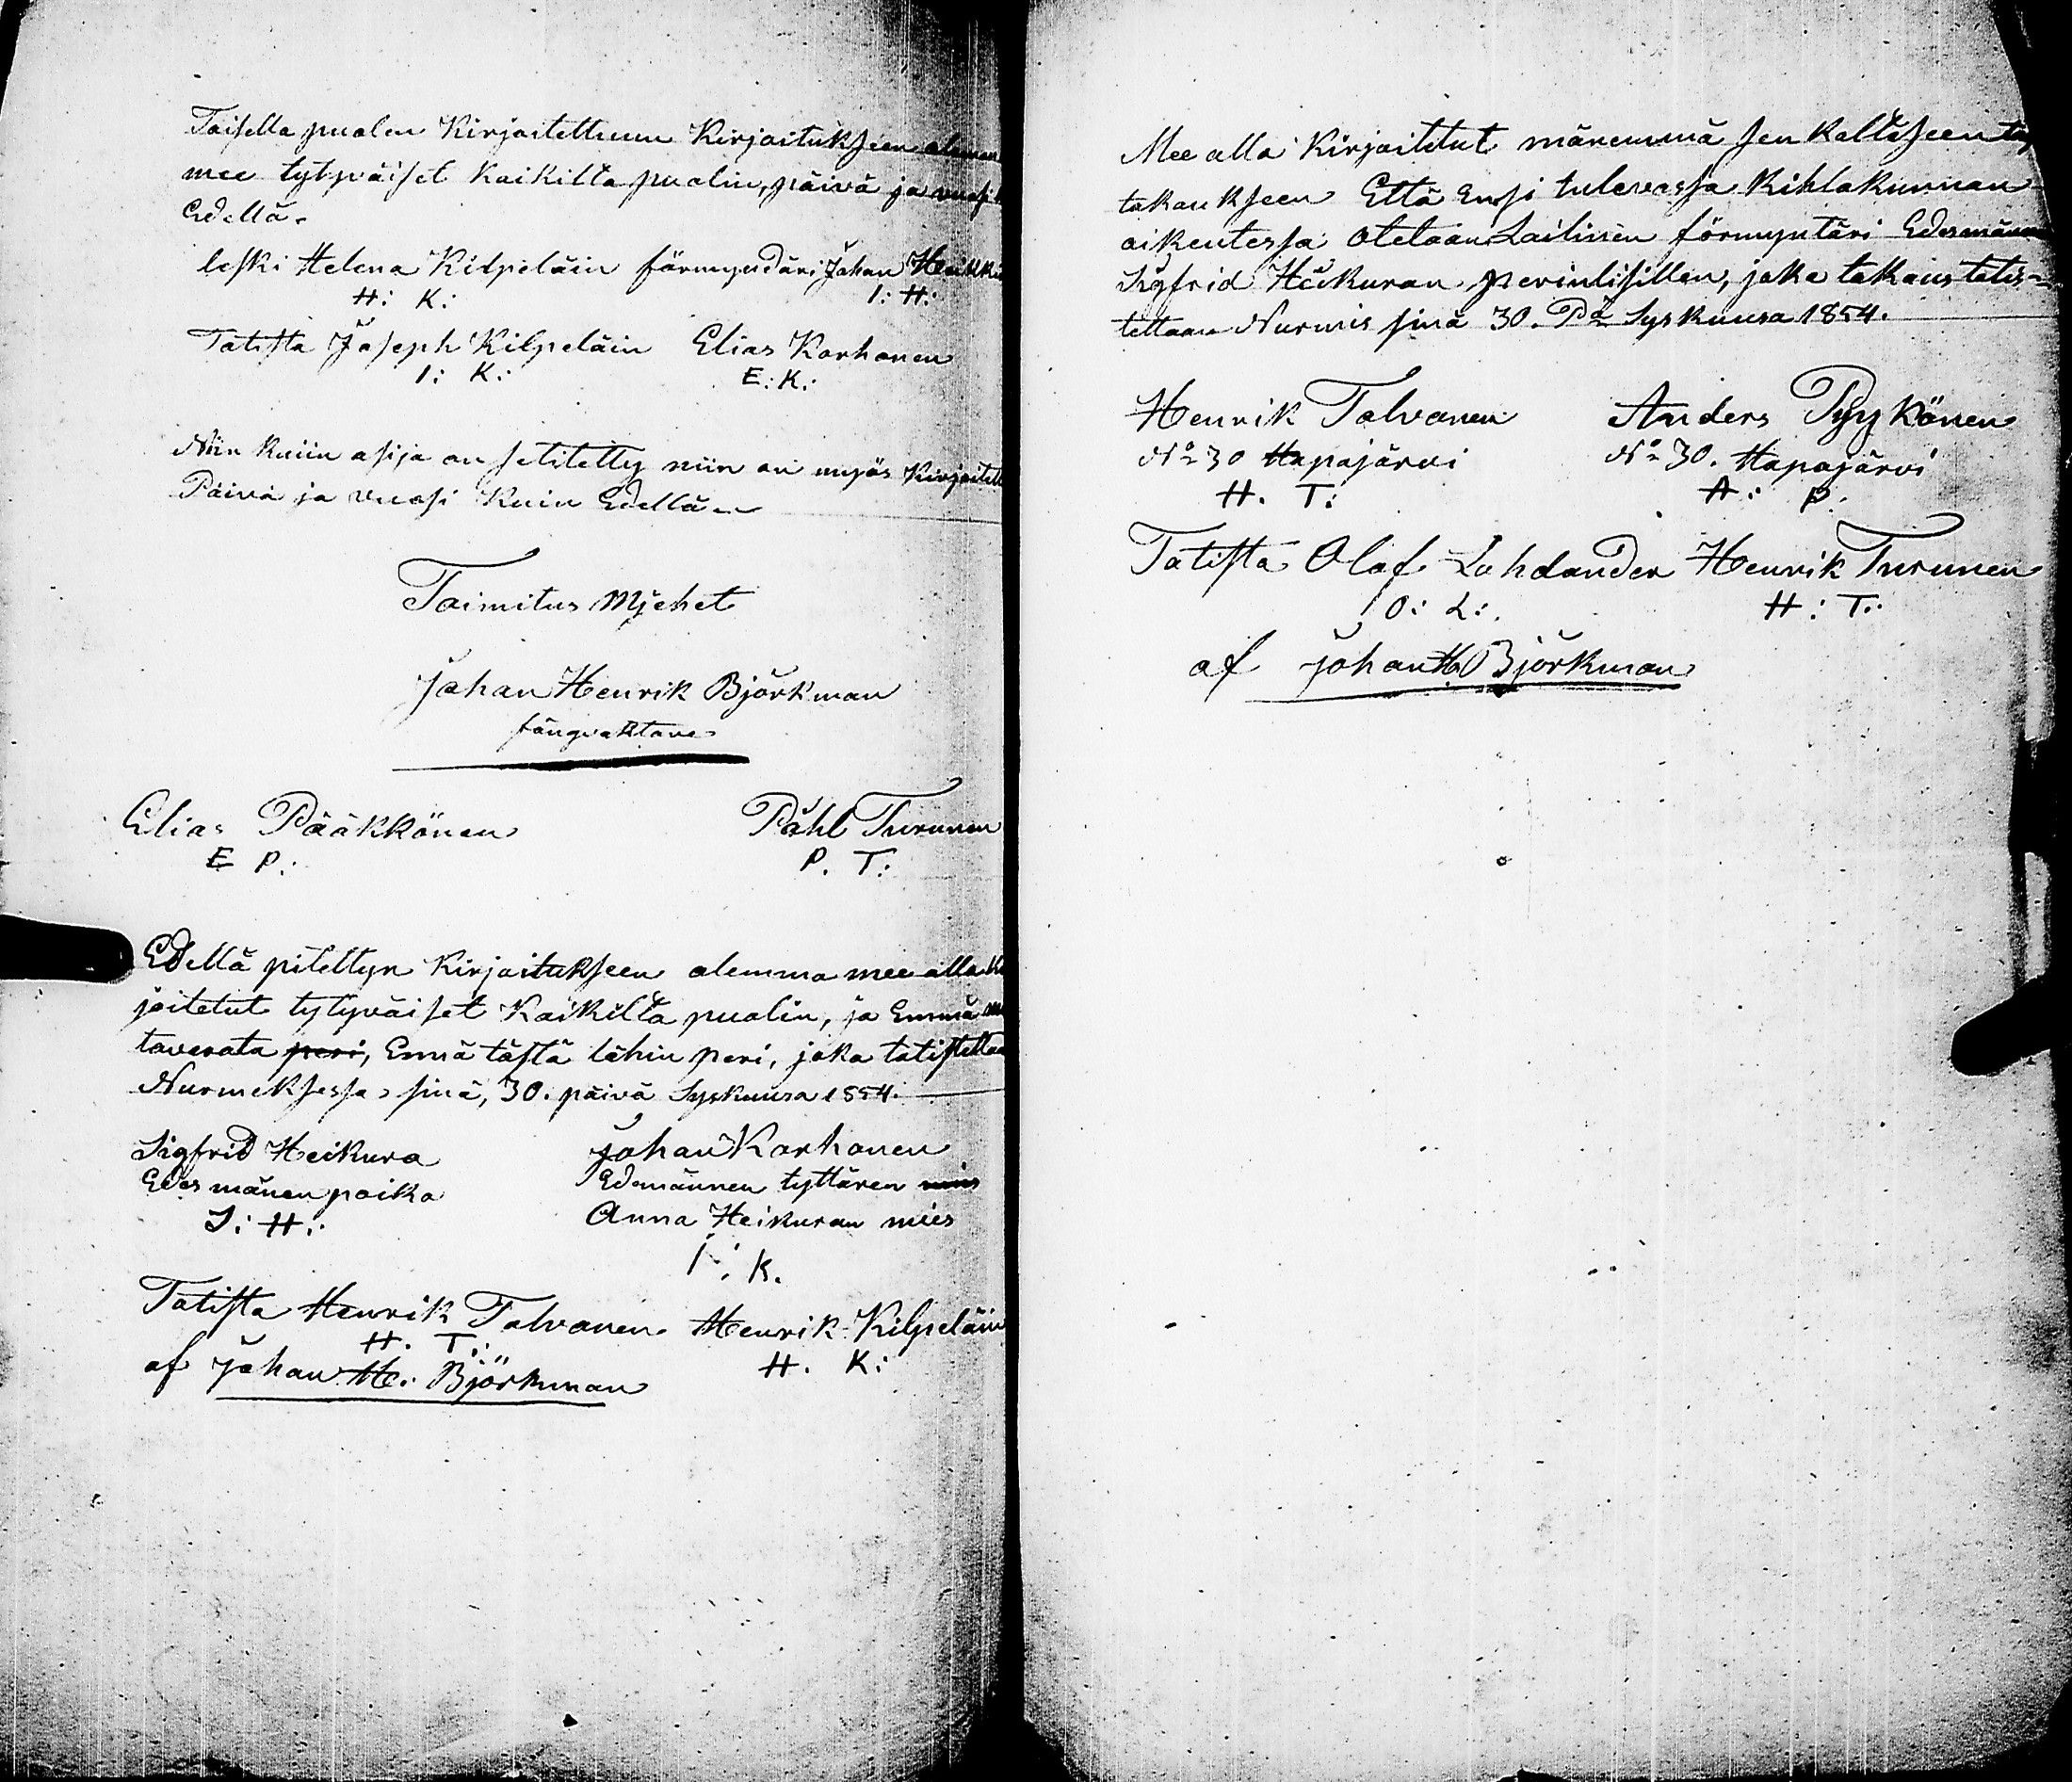 Toisella puolen Kirjoitettuun Kirjoitukseen olemma
mee tytyväiset kaikilta puolin, päivä ja vuosi
Edellä.
leski Helena Kilpeläin förmyndäri Johan Heikki
H: K: I: H:
Totista Joseph Kilpeläin Elias Korhonen
I: K: E: K:
Niin kuiin asija on setitetty niin on myös Kirjoitet
Päivä ja vuosi Kuin Edellä
Toimitus Mjehet
Johan Henrik Björkman
fångvaktare
Elias Pääkkönen Påhl Turunen
E P: P. T:
Edellä piteltyn Kirjoitukseen olemma mee alla Ki
joitetut tytyväiset Kaikilta puolin, ja Emmä
taverata peri, Ennä tästä lähin peri, joka totistettaa
Nurmeksessa sinä, 30. päivä Syskuusa 1854.
Sigfrid Heikura Johan Korhonen
Edes mänen poika Edemännen tyttären mies
S: H: Anna Heikuran mies
I: K.
Totista Henrik Tolvanen Henrik Kilpeläin
H. T: H. K:
af Johan H: Björkman
Mee alla Kirjoitetut mänemmä sen kaltaseen
takaukseen Että Ensi tulevassa Kihlakunnan
oikeutessa otetaan Lailinen förmyntäri Edesmänn
Sigfrid Heikuran perinlisillen, joka takaus totis-
tettaan Nurmis sinä 30. Pä Syskuusa 1854.
Henrik Tolvanen Anders Pyykönen
No 30 Hapajärvi No 30. Hapajärvi
H. T: A: P.
Totista Olof Lohdander Henrik Turunen
O: L: H: T:
af Johan H Björkman